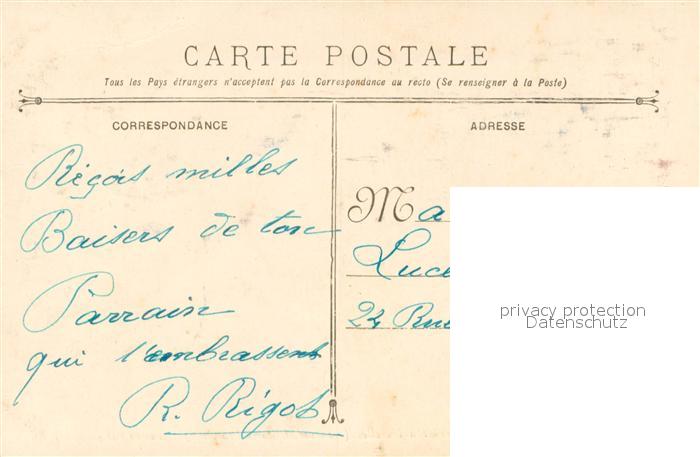 CARTE POSTALE
Tous les Pays étrangers n'acceptent pas la Correspondance au recto (Se renseigner à la Poste)
CORRESPONDANCE
Réçois milles
Baisers de ton
Parrain
qui t'embrassent
R. Rigot
ADRESSE
Ma
Luce
24 Rue
privacy protection
Datenschutz